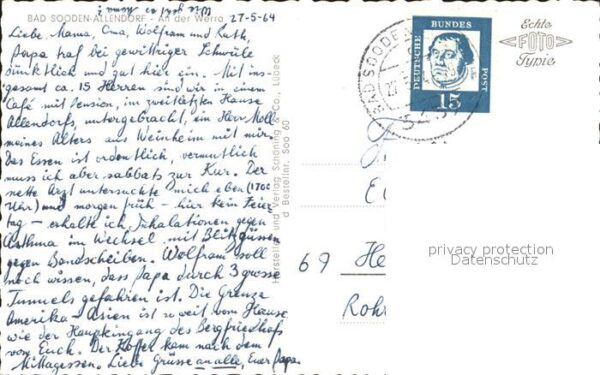 Wie geht es Mama?
BAD SOODEN-ALLENDORF - An der Werra 27-5-64
Liebe Mama, Oma, Wolfram und Ruth,
Papa traf bei gewittriger Schwüle
pünktlich und gut hier ein. Mit ins-
gesamt ca. 15 Herren sind wir in einem
Café mit Pension, im zweitletzten Hause
Allendorfs, untergebracht, ein Herr Noll
meines Alters aus Weinheim mit mir.
Das Essen ist ordentlich, vermutlich
muss ich aber sabbats zur Kur. Der
nette Arzt untersuchte mich eben (1700
Uhr) und morgen früh - hier kein Feier
tag - erhalte ich Inhalationen gegen
Asthma im Wechsel mit Blitzgüssen
gegen Bandscheiben. Wolfram soll
noch wissen, dass Papa durch 3 grosse
Tunnels gefahren ist. Die Grenze
Amerika-Asien ist so weit vom Hause
wie der Haupteingang des Bergfriedhofs
von Euch. Der Koffer kam nach dem
Mittagessen. Liebe Grüsse an alle, Euer Papa.
Hersteller und Verlag Schöning & Co., Lübeck
Bestellnr. Soo 60
BAD SOODEN
27.5
DEUTSCHE BUNDES POST
15
Echte
FOTO
Typie
69 He
Rohr
privacy protection
Datenschutz